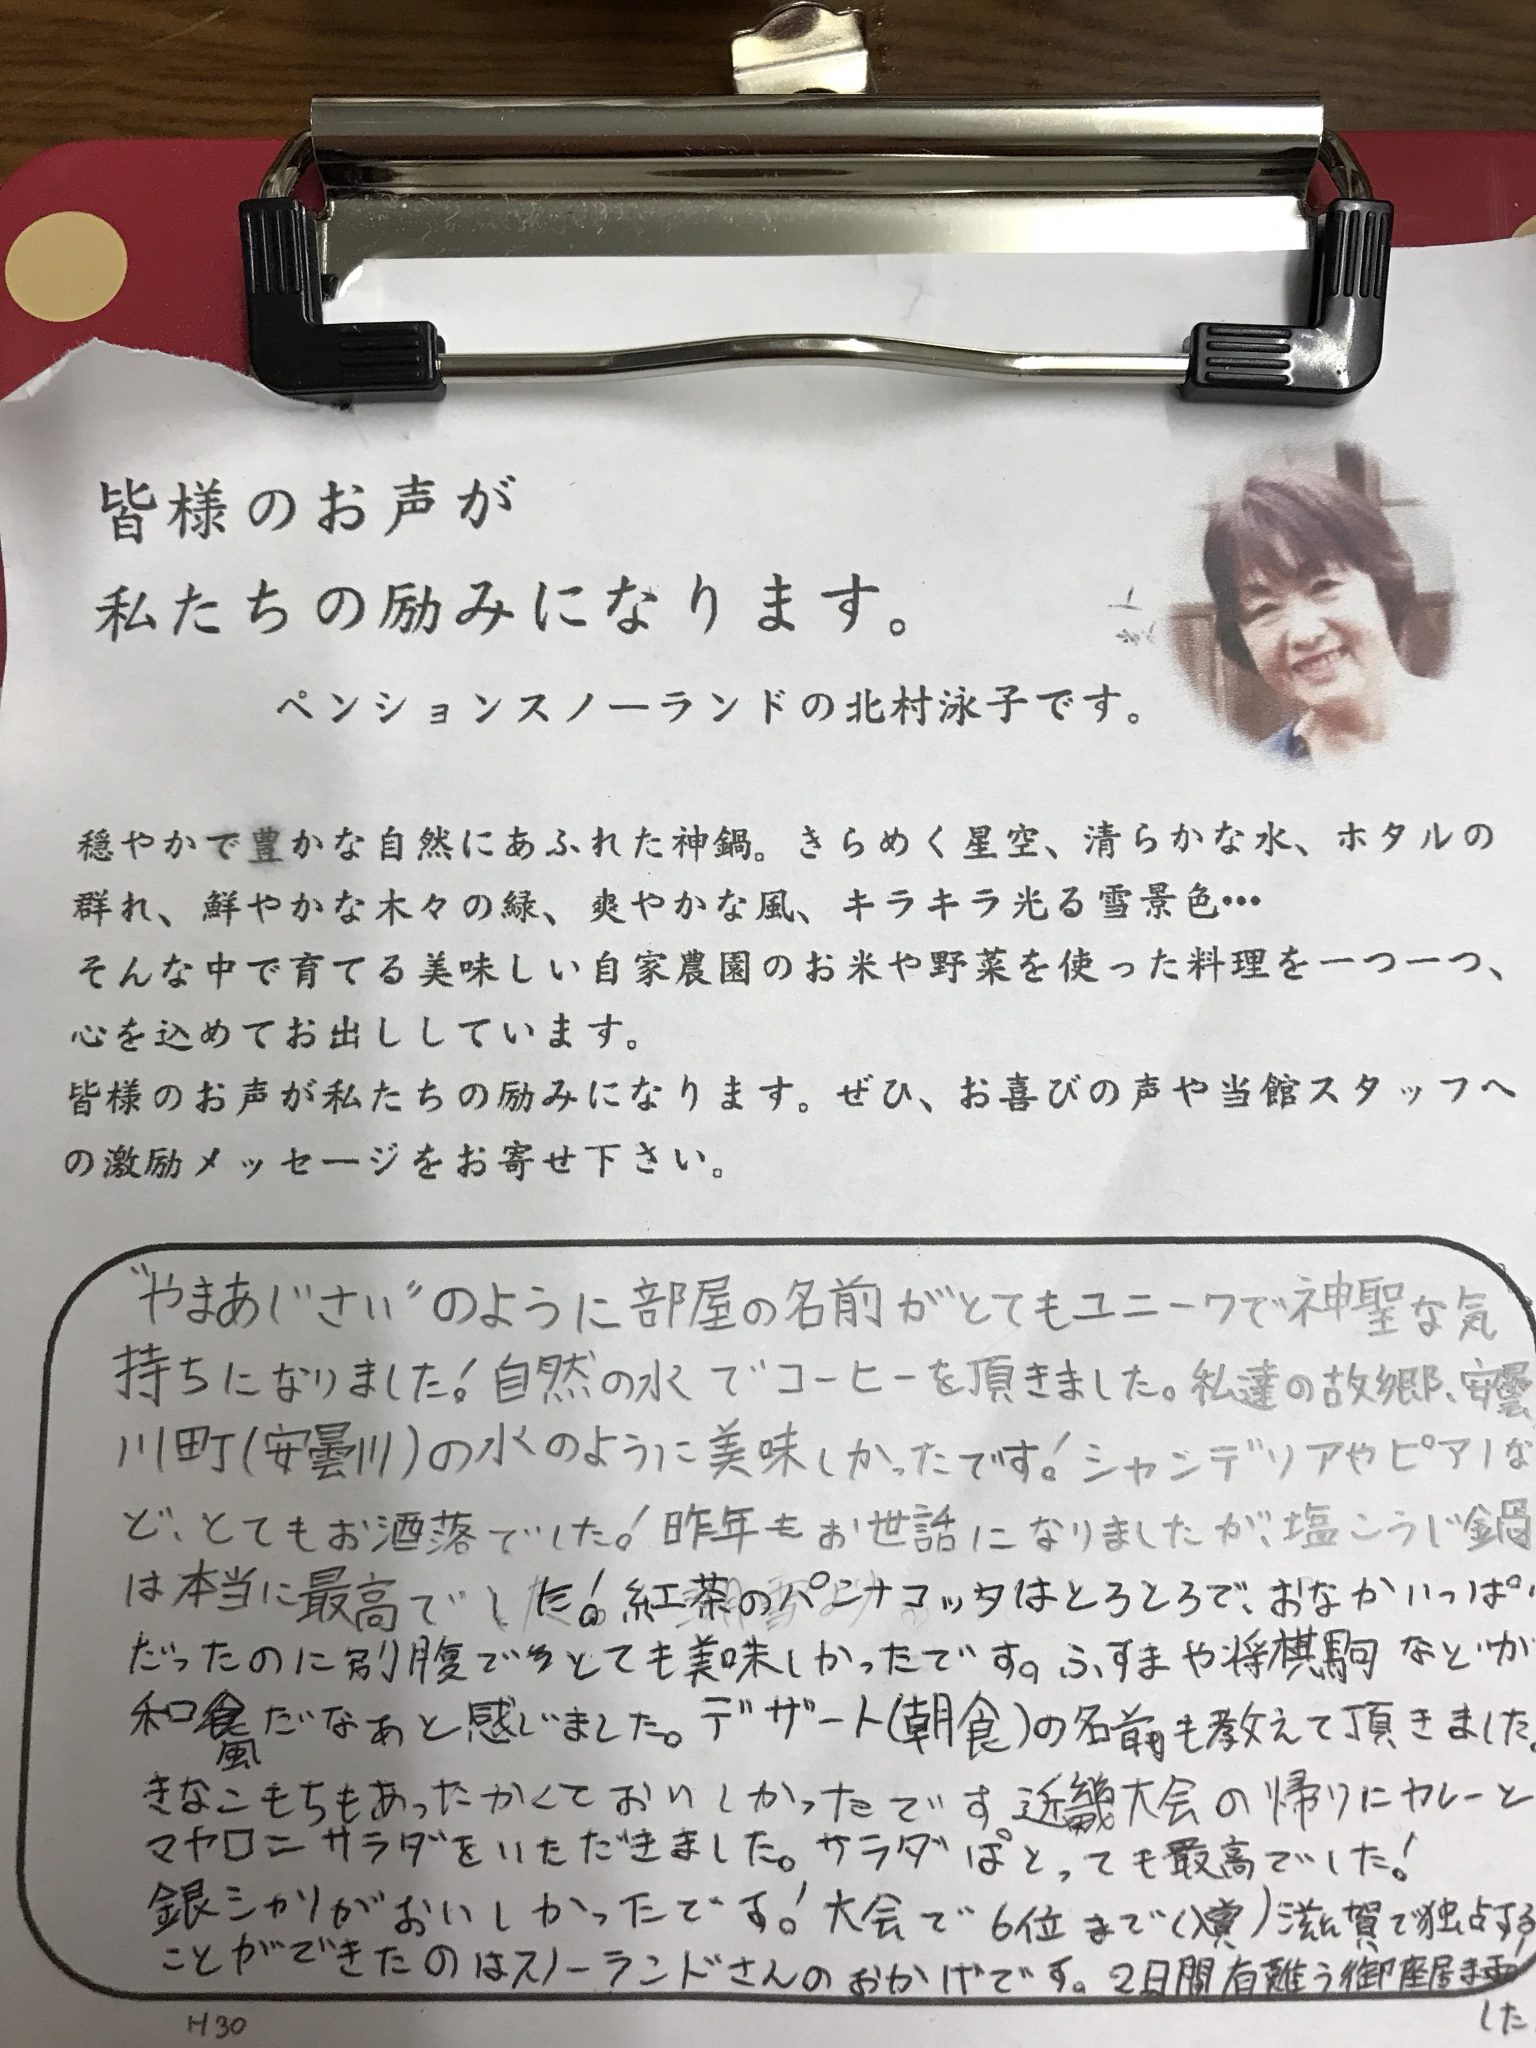 皆様のお声が
私たちの励みになります。
ペンションスノーランドの北村泳子です。
穏やかで豊かな自然にあふれた神鍋。きらめく星空、清らかな水、ホタルの
群れ、鮮やかな木々の緑、爽やかな風、キラキラ光る雪景色…
そんな中で育てる美味しい自家農園のお米や野菜を使った料理を一つ一つ、
心を込めてお出ししています。
皆様のお声が私たちの励みになります。ぜひ、お喜びの声や当館スタッフへ
の激励メッセージをお寄せ下さい。
“やまあじさい”のように部屋の名前がとてもユニークで神聖な気
持ちになりました!自然の水でコーヒーを頂きました。私達の故郷、安曇
川町(安曇川)の水のように美味しかったです!シャンデリアやピアノな
ど、とてもお洒落でした!昨年もお世話になりましたが、塩こうじ鍋
は本当に最高でした!紅茶のパンナコッタはとろとろで、おなかいっぱい
だったのに別腹でとても美味しかったです。ふすまや将棋駒などが
和風だなぁと感じました。デザート(朝食)の名前も教えて頂きました。
きなこもちもあったかくておいしかったです。近畿大会の帰りにカレーと
マヤロニサラダをいただきました。サラダぽとっても最高でした!
銀シャリがおいしかったです!大会で6位まで(入賞)滋賀で独占する
ことができたのはスノーランドさんのおかげです。2日間有難う御座居ま
した
H30